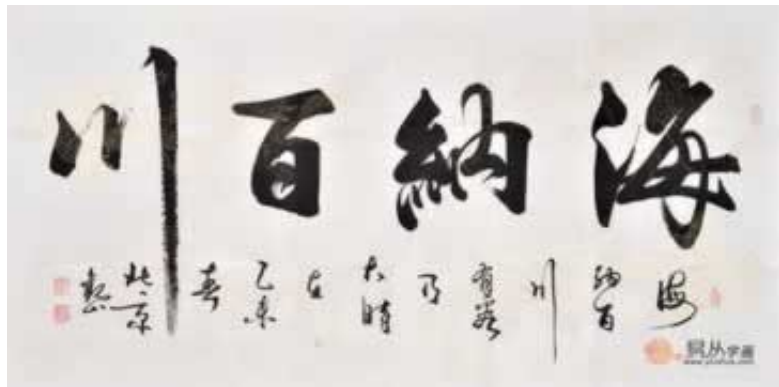 海納百川
海納百川有容乃大時在乙未春北京
易从字画